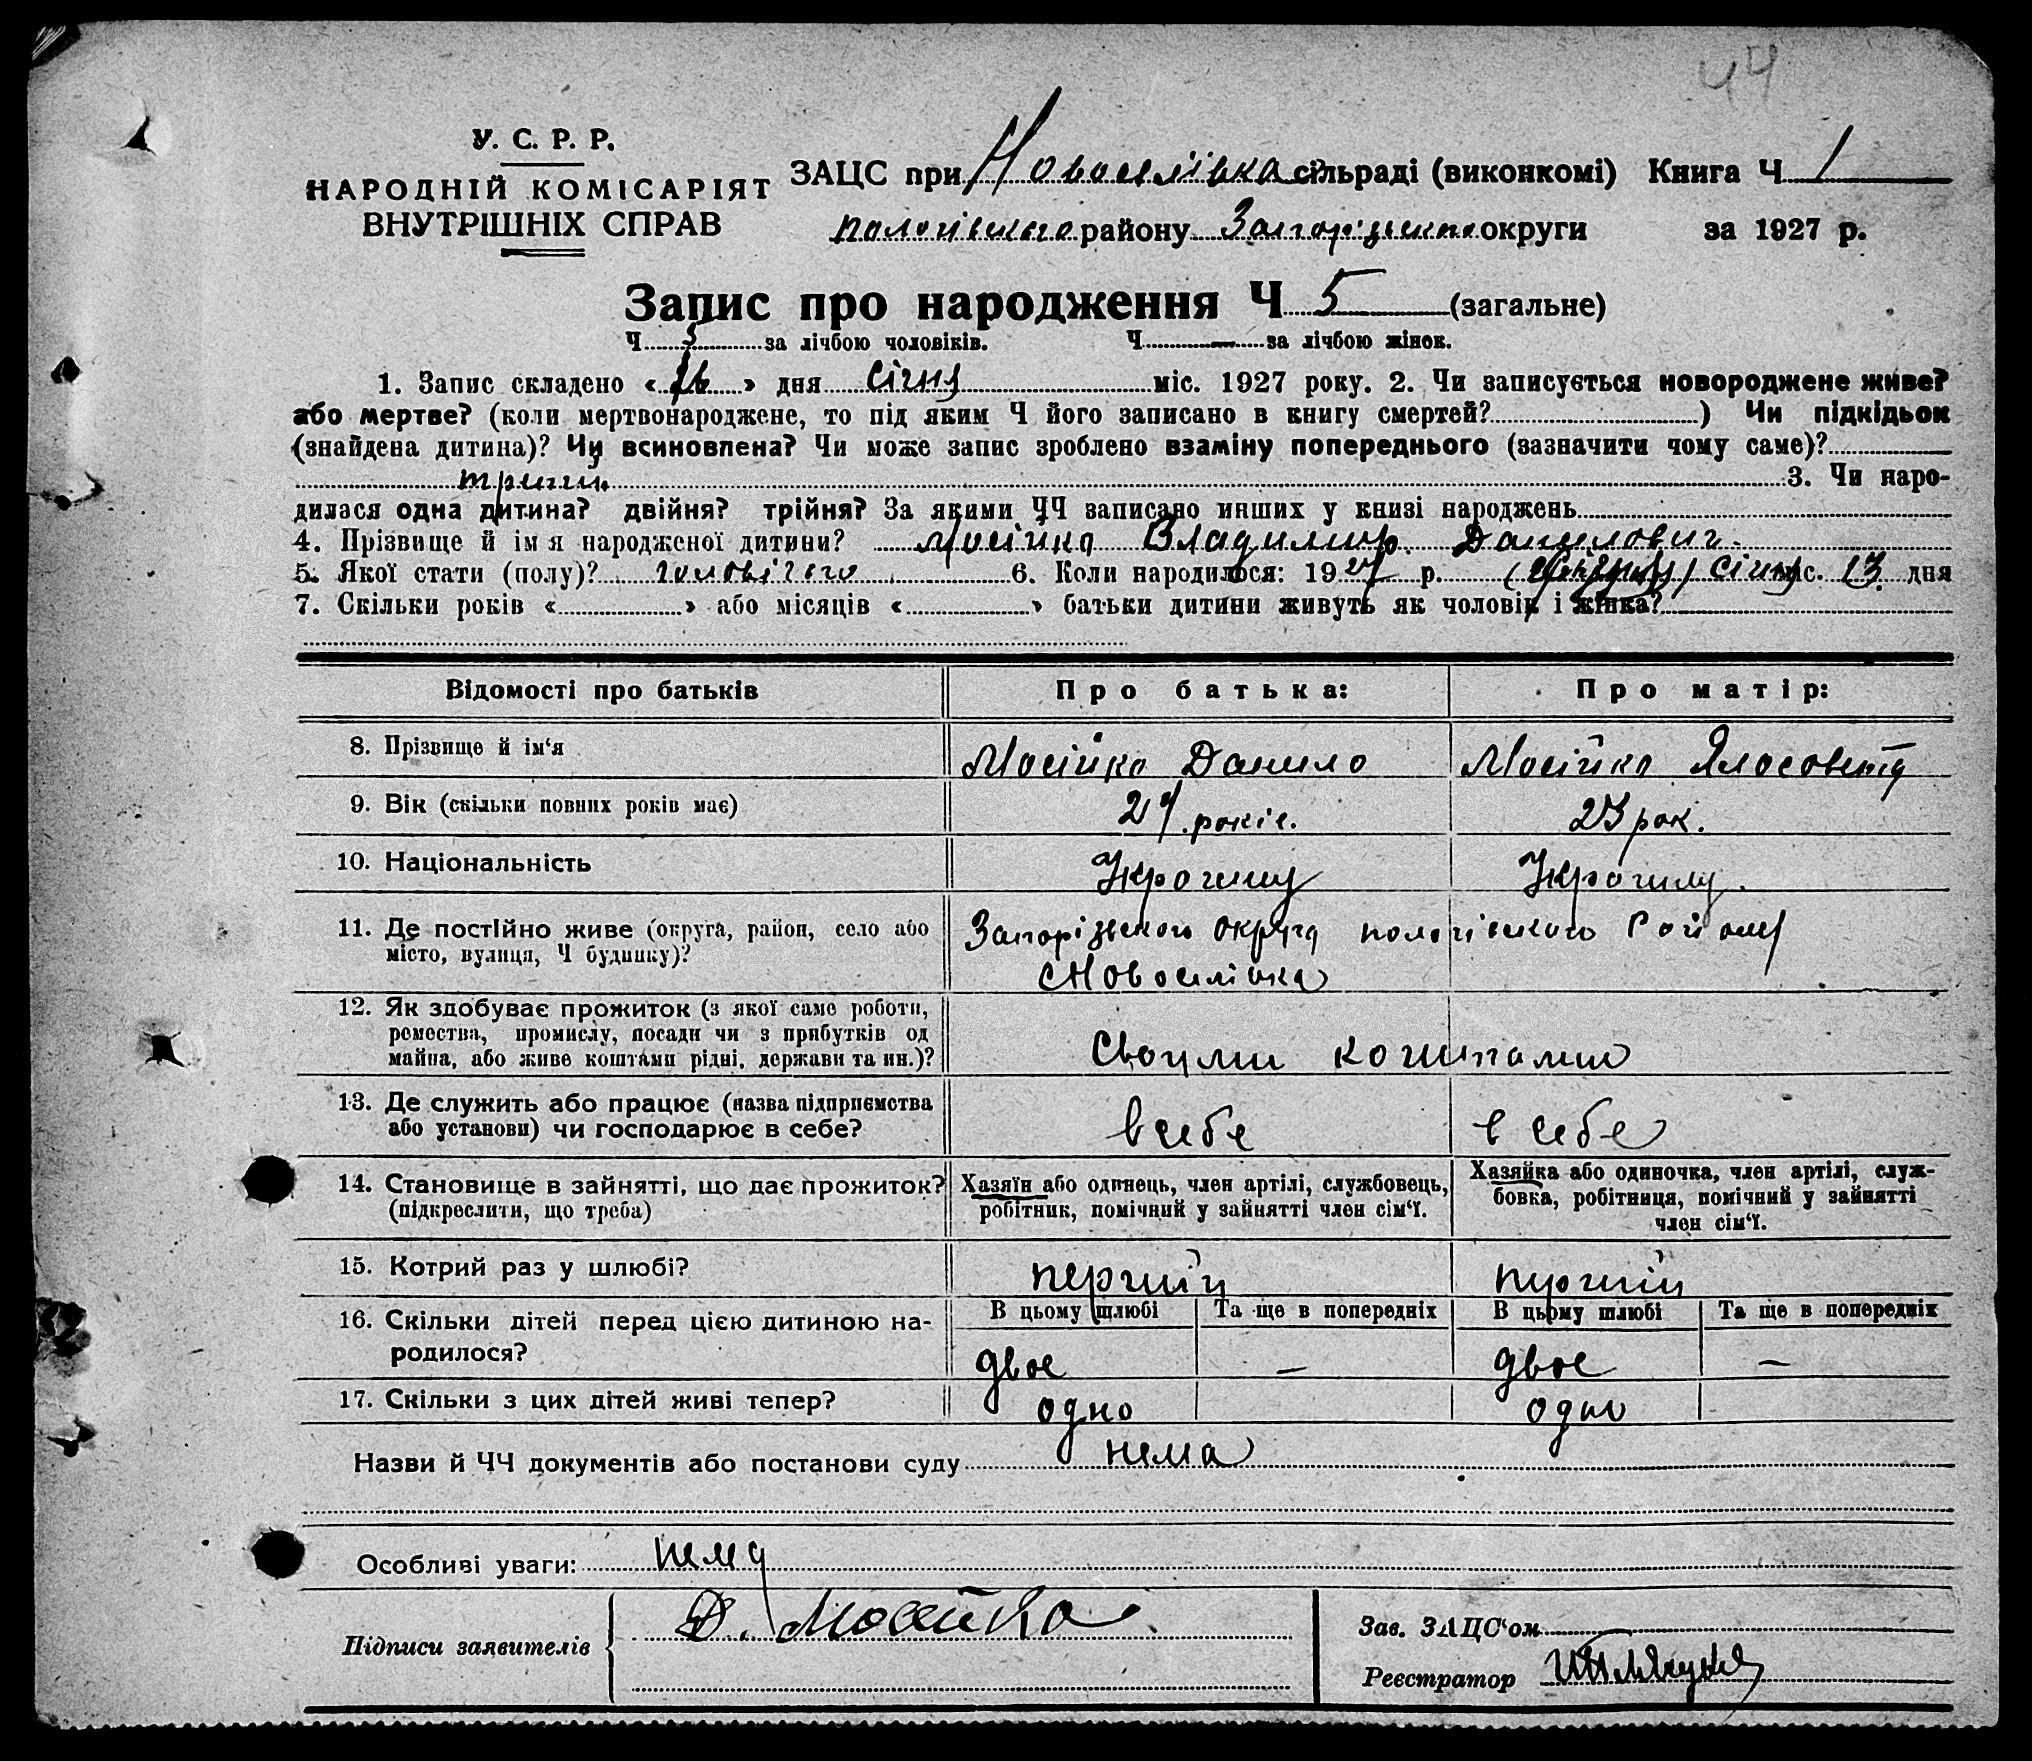 44
У. С. Р. Р.
НАРОДНІЙ КОМІСАРІЯТ
ВНУТРІШНІХ СПРАВ
ЗАЦС при Новоселівка сільраді (виконкомі) Книга Ч 1
пологівського району Запоріжської округи за 1927 р.
Запис про народження Ч 5 (загальне)
Ч 5 за лічбою чоловіків. Ч — за лічбою жінок.
1. Запис складено « » дня січня міс. 1927 року. 2. Чи записується новороджене живе?
або мертве? (коли мертвонароджене, то під яким Ч його записано в книгу смертей? ) Чи підкідьок
(знайдена дитина)? Чи всиновлена? Чи може запис зроблено взаміну попереднього (зазначити чому саме)?
3. Чи наро-
дилася одна дитина? двійня? трійня? За якими ЧЧ записано инших у книзі народжень
4. Прізвище й ім я народженої дитини? Мосійко Владимир Данилович.
5. Якої стати (полу)? чоловічого 6. Коли народилося: 1927 р. січня міс. 13 дня
7. Скільки років « » або місяців « » батьки дитини живуть як чоловік і жінка?
Відомості про батьків Про батька: Про матір:
8. Прізвище й ім‘я Мосійко Данило Мосійко Ялосовета
9. Вік (скільки повних років має) 27 років. 23 рок.
10. Національність
11. Де постійно живе (округа, район, село або Запорізького округа пологівського Району
місто, вулиця, Ч будинку)? с Новоселівка
12. Як здобуває прожиток (з якої саме роботи,
ремества, промислу, посади чи з прибутків од
майна, або живе коштами рідні, держави та ин.)? Своими коштами
13. Де служить або працює (назва підприємства
або установи) чи господарює в себе? в себе в себе
14. Становище в зайнятті, що дає прожиток? Хазяїн або одинець, член артілі, службовець, Хазяйка або одиночка, член артілі, служ-
(підкреслити, що треба) робітник, помічний у зайнятті член сім‘ї. бовка, робітниця, помічний у зайнятті
член сім‘ї.
15. Котрий раз у шлюбі? перший перший
16. Скільки дітей перед цією дитиною на- В цьому шлюбі Та ще в попередніх В цьому шлюбі Та ще в попередніх
родилося? двое — двое —
17. Скільки з цих дітей живі тепер? одно одно
Назви й ЧЧ документів або постанови суду нема
Особливі уваги: нема
Підписи заявителів Д. Мосейко.
Зав. ЗАЦС‘ом
Реєстратор